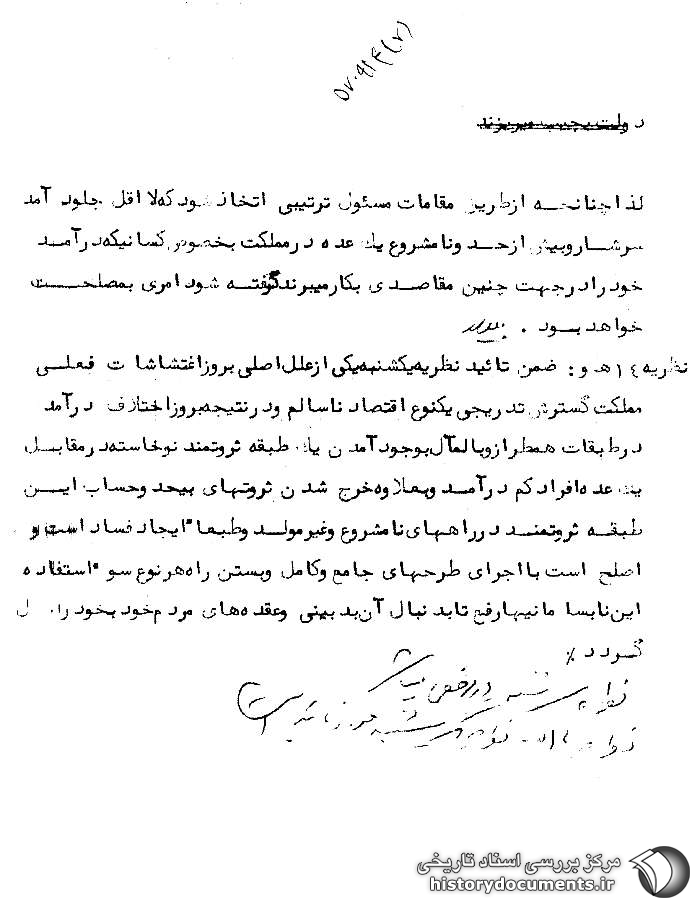 ۵۷۰۹۱۴(۲)
دولت بچسب و بریزند
لذا چنانچه از طریق مقامات مسئول ترتیبی اتخاذ شود که لااقل جلو درآمد
سرشار و بیش از حد و نامشروع یک عده در مملکت بخصوص کسانیکه درآمد
خود را در جهت چنین مقاصدی بکار میبرند گرفته شود امری بمصلحت
خواهد بود .
نظریه ۱۴ هـ و : ضمن تائید نظریه یکشنبه یکی از علل اصلی بروز اغتشاشات فعلی
مملکت گسترش تدریجی یکنوع اقتصاد ناسالم و در نتیجه بروز اختلاف درآمد
در طبقات همطراز و بالمآل بوجود آمدن یک طبقه ثروتمند نوخاسته در مقابل
یک عده افراد کم درآمد و بعلاوه خرج شدن ثروتهای بیحد و حساب این
طبقه ثروتمند در راههای نامشروع و غیر مولد و طبعا" ایجاد فساد است و
اصلح است با اجرای طرحهای جامع و کامل و بستن راه هر نوع سو" استفاده
این نابسامانیها رفع تا بدنبال آن بدبینی و عقده های مردم خود بخود زا ل
گردد ٪
نظریه سه شنبه
نظریه
مرکز بررسی اسناد تاریخی
historydocuments.ir